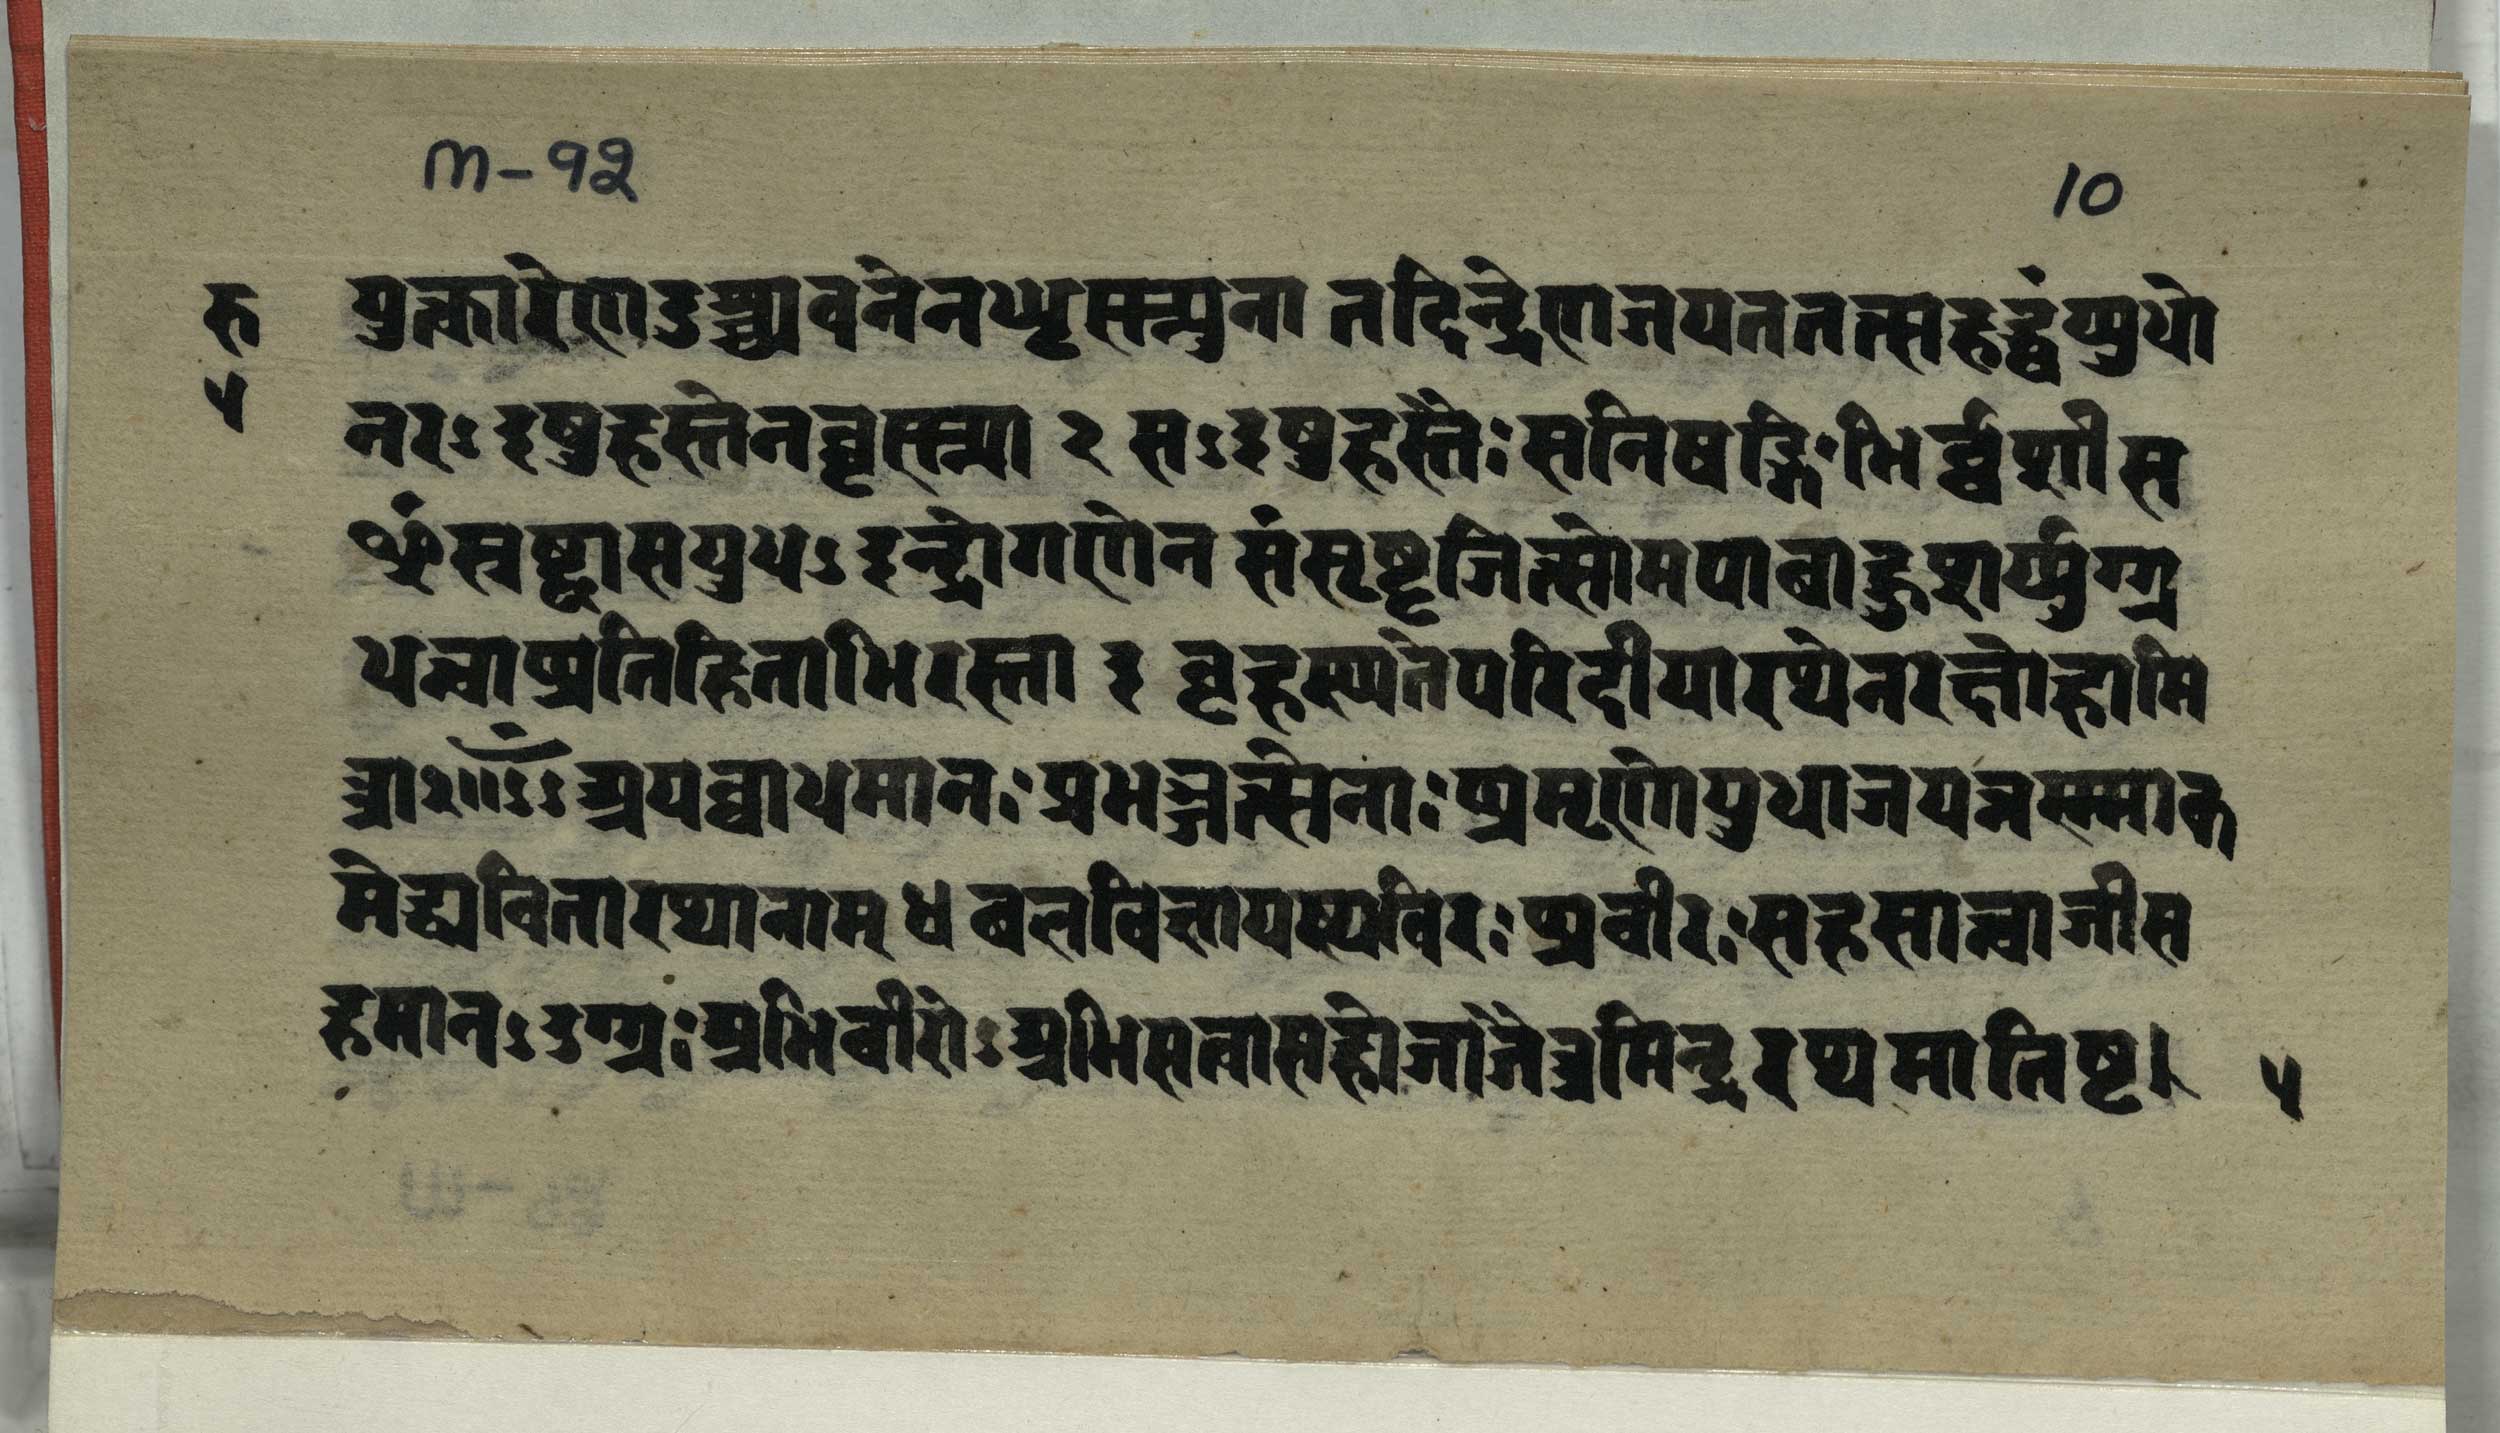 m-१२
10
रु युत्कारेणाऽदुश्च्यवनेनधृस्म्णुना तदिन्द्रेणजयततत्सहद्ध्वंय्युधो
५ नरऽइषुहस्तेनवृस्म्णा २ सऽइषुहस्तैः सनिषङ्गिभिर्व्वशीस
ᳪंस्रष्टासयुधऽइन्द्रोगणेन संसृष्टजित्सोमपाबाहुशर्ध्युग्ग्र
धन्वाप्प्रतिहिताभिरस्ता ३ बृहस्प्पतेपरिदीयारथेनरक्षोहामि
त्राꣳ२॥ऽऽअपबाधमानः प्रभञ्जन्त्सेनाः प्प्रमृणोयुधाजयन्नस्म्माक
मेद्ध्यवितारथानाम् ४ बलविज्ञायस्थविरः प्प्रवीरः सहस्वान्वाजीस
हमानऽउग्ग्रः अभिवीरोऽअभिसत्वासहोजाजैत्रमिन्द्ररथमातिष्ठ। ५